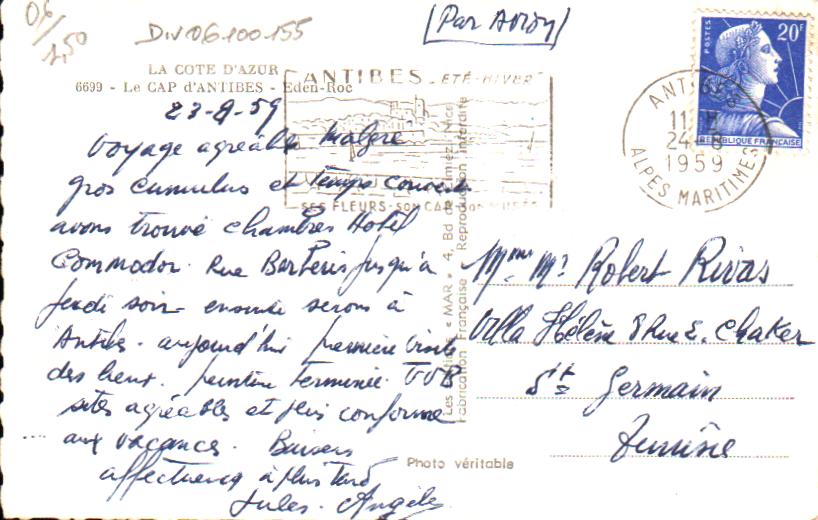 06/
1,50
Div 06.100-155
(Par Avion)
LA COTE D'AZUR
6699 - Le CAP d'ANTIBES - Eden-Roc
ANTIBES - ETÉ-HIVER
SES FLEURS-SON CAP
POSTES
20F
REPUBLIQUE FRANÇAISE
ANT
24
1959
ALPES MARITIMES
23-8-59
Voyage agréable malgré
gros cumulus et temps couvert
avons trouvé chambres Hotel
Commodor. Rue Barberis jusqu'à
jeudi soir ensuite serons à
Antibes. aujourd'hui première visite
des lieux. peinture terminée
sites agréables et plus conforme
aux vacances. Baisers
affectueux à plus tard
Jules. Angèle
4, Bd de Cimiez, Nice
Reproduction interdite
« MAR »
Fabrication Française
Mme Mr Robert Rivas
Villa Hélène 8 Rue E. Chaker
St Germain
Tunisie
Photo véritable